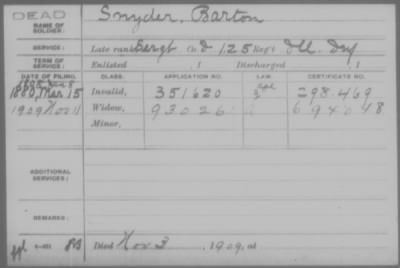 DEAD
NAME OF SOLDIER: Snyder, Barton
SERVICE: Late rank Sergt Co. D 125 Reg't Ill. Inf
TERM OF SERVICE: Enlisted , 1 Discharged , 1
DATE OF FILING. CLASS. APPLICATION NO. LAW. CERTIFICATE NO.
1880, Mar 15 Invalid, 351620 298.469
1909 Nov 11 Widow, 930261 694048
Minor,
ADDITIONAL SERVICES:
REMARKS:
Died Nov 3, 1909, at